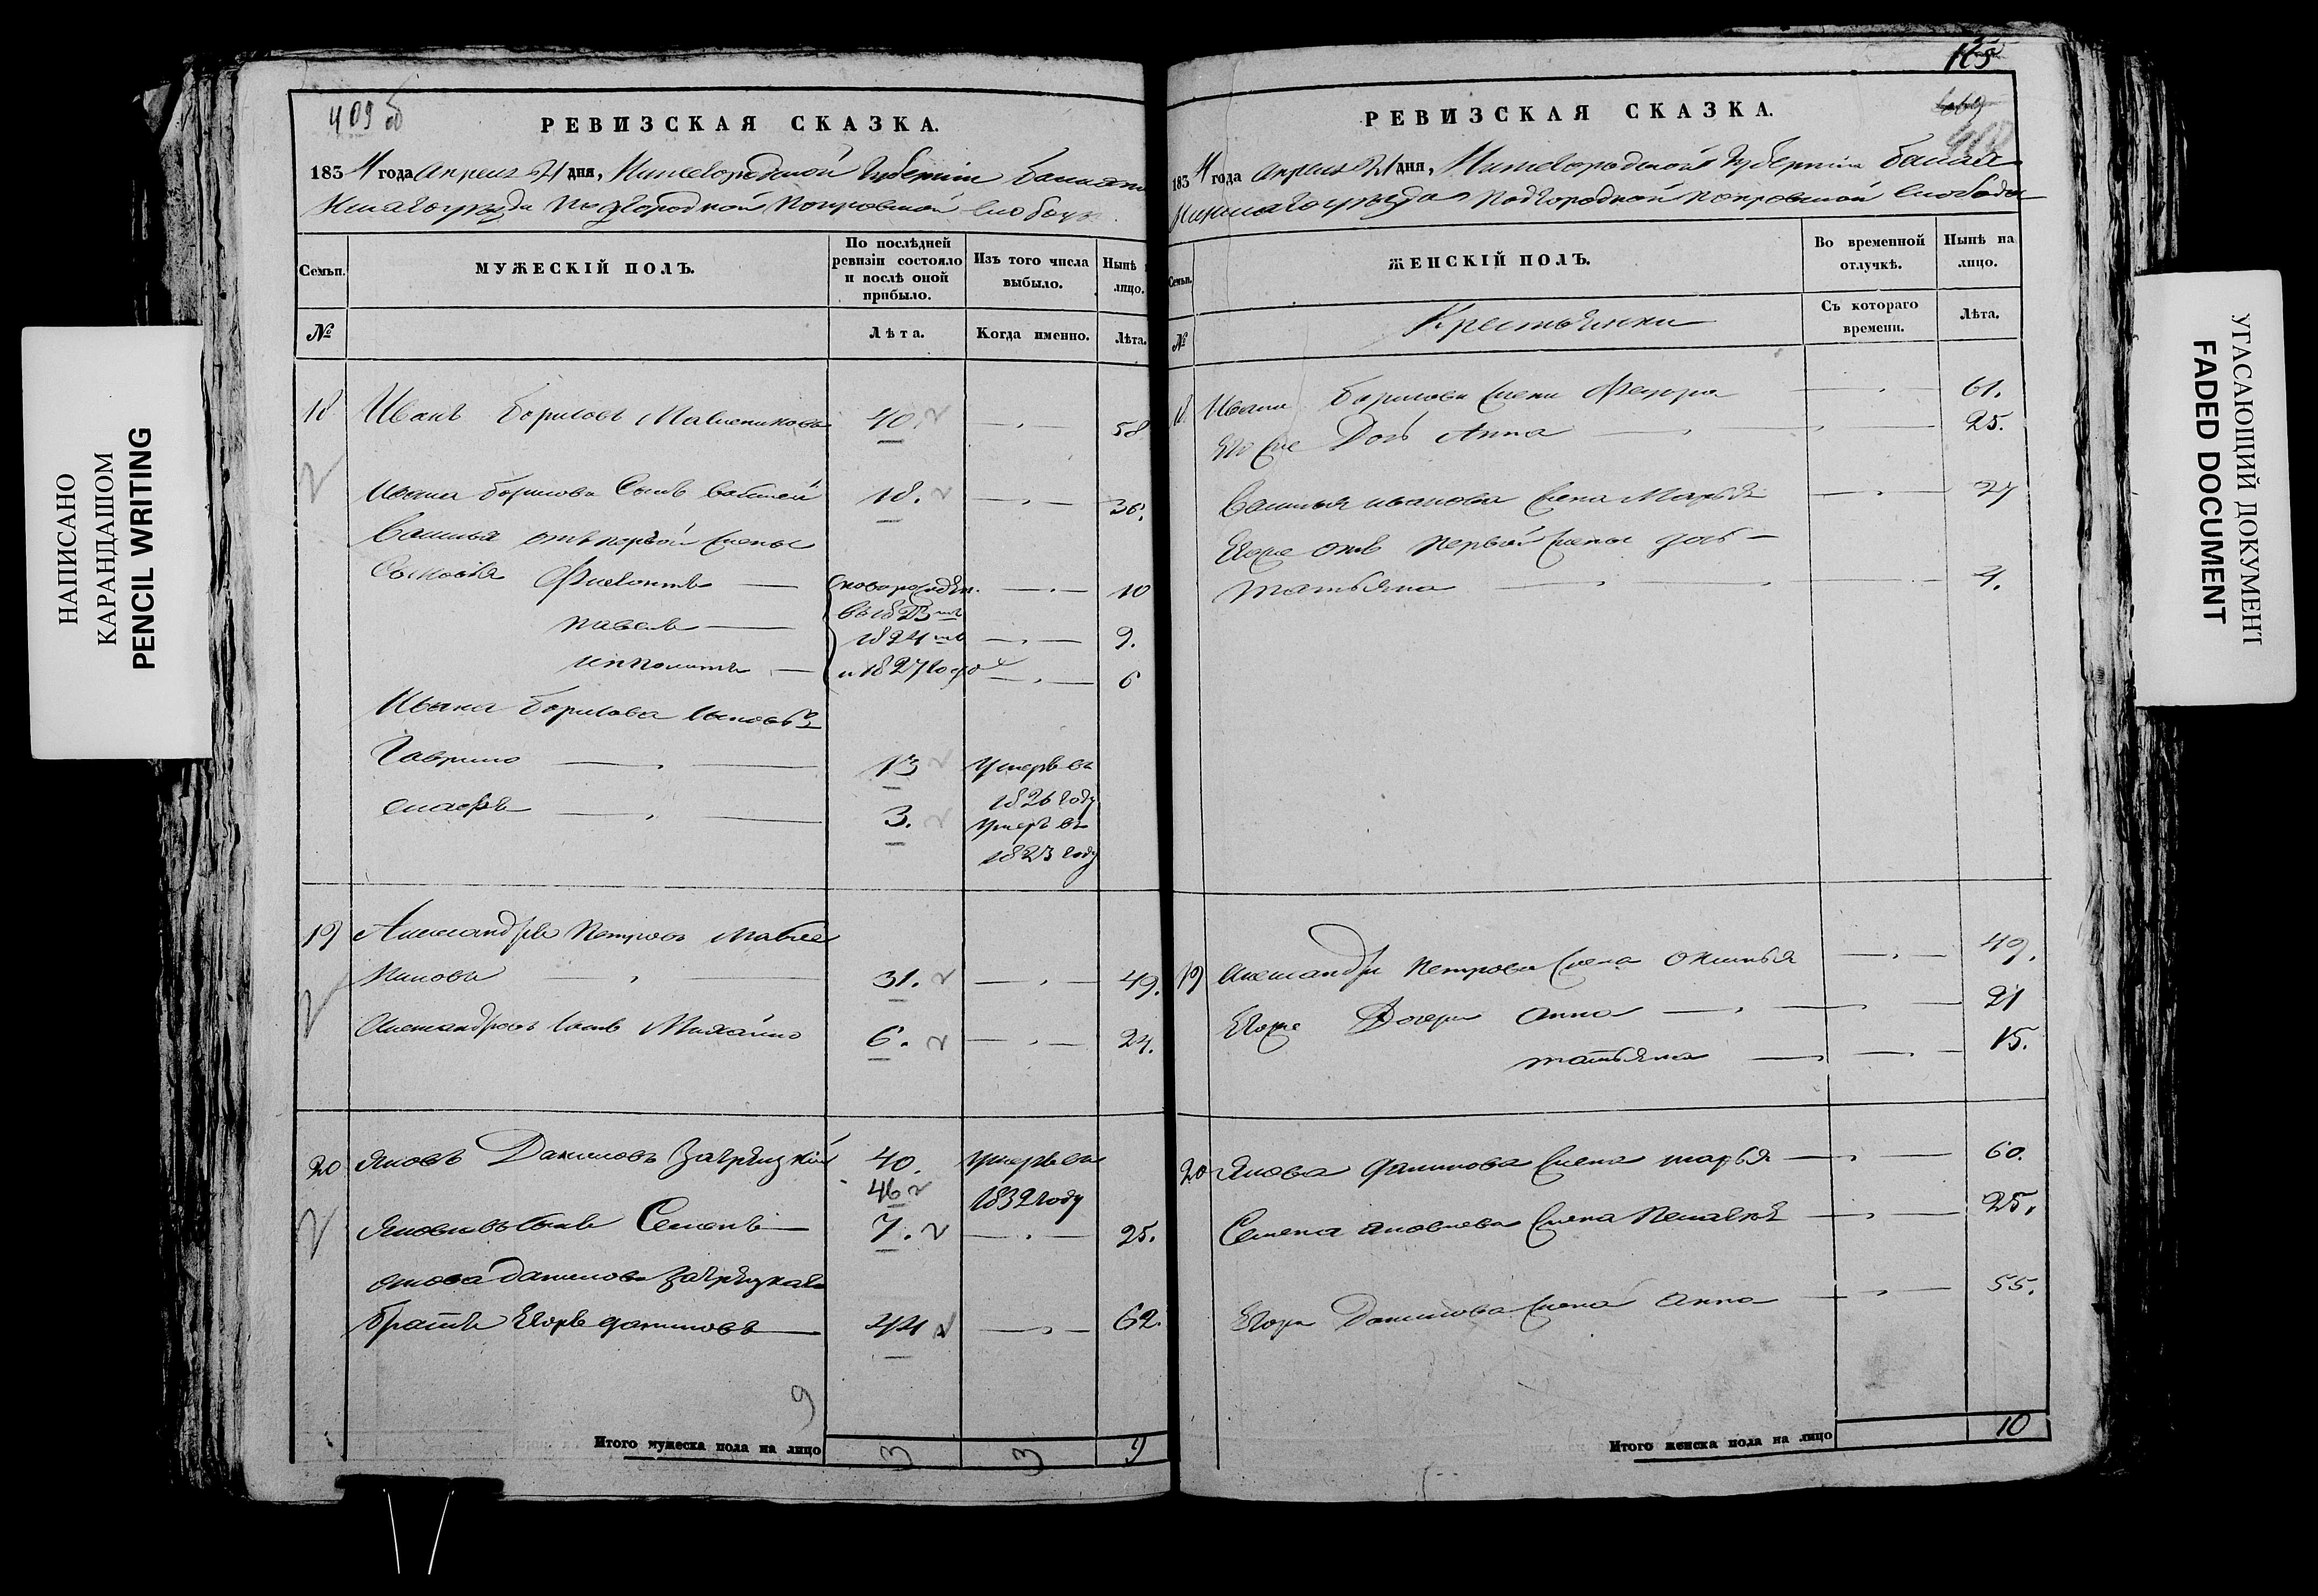 НАПИСАНО
КАРАНДАШОМ
PENCIL WRITING
409 об
РЕВИЗСКАЯ СКАЗКА.
1834 года Апреля 21 дня, Нижегородской Губернии
уезда Подгородной Покровской слободы
Семьи. МУЖЕСКІЙ ПОЛЪ. По послѣдней ревизіи состояло и послѣ оной прибыло. Изъ того числа выбыло. Нынѣ лицо.
№ Лѣта. Когда именно. Лѣта.
18 Иванъ Борисовъ 40 58
Ивана Борисова Сынъ Василей 18. 36.
Василья отъ первой жены
Сыновья Филонтъ новорожден. 10
въ 1823мъ
Павелъ 1824мъ 9.
Ипполитъ и 1827 годе 6
Ивана Борисова сыновья
Гаврило 13 Умеръ въ
1826 году
3. Умеръ въ
1823 году
19 Александръ Петровъ
31. 49.
Александровъ сынъ Михайло 6. 24.
20 Яковъ Даниловъ Загряцкій 40. умеръ въ
46 1832 году
Яковлевъ сынъ Семенъ 7. 25.
Якова Данилова Загряцкаго
братъ Егоръ Даниловъ 44 62.
9
Итого мужеска пола на лицо 3 3 9
165
РЕВИЗСКАЯ СКАЗКА.
1834 года апреля 21 дня, Нижегородской Губернии
уезда Подгородной Покровской слободы
Семьи. ЖЕНСКІЙ ПОЛЪ. Во временной отлучкѣ. Нынѣ на лицо.
№ Крестьянки Съ котораго времени. Лѣта.
18 Ивана Борисова жена 61.
Его же Дочь Анна 25.
Василья иванова жена Марья 27
Егоже отъ первой жены дочь
татьяна 4.
19 Александра Петрова жена 49.
Егоже Дочери Анна 21
татьяна 15.
20 Якова Данилова жена марья 60.
Семена яковлева жена Пелагея 25.
Егора Данилова жена Анна 55.
Итого женска пола на лицо 10
УГАСАЮЩИЙ ДОКУМЕНТ
FADED DOCUMENT